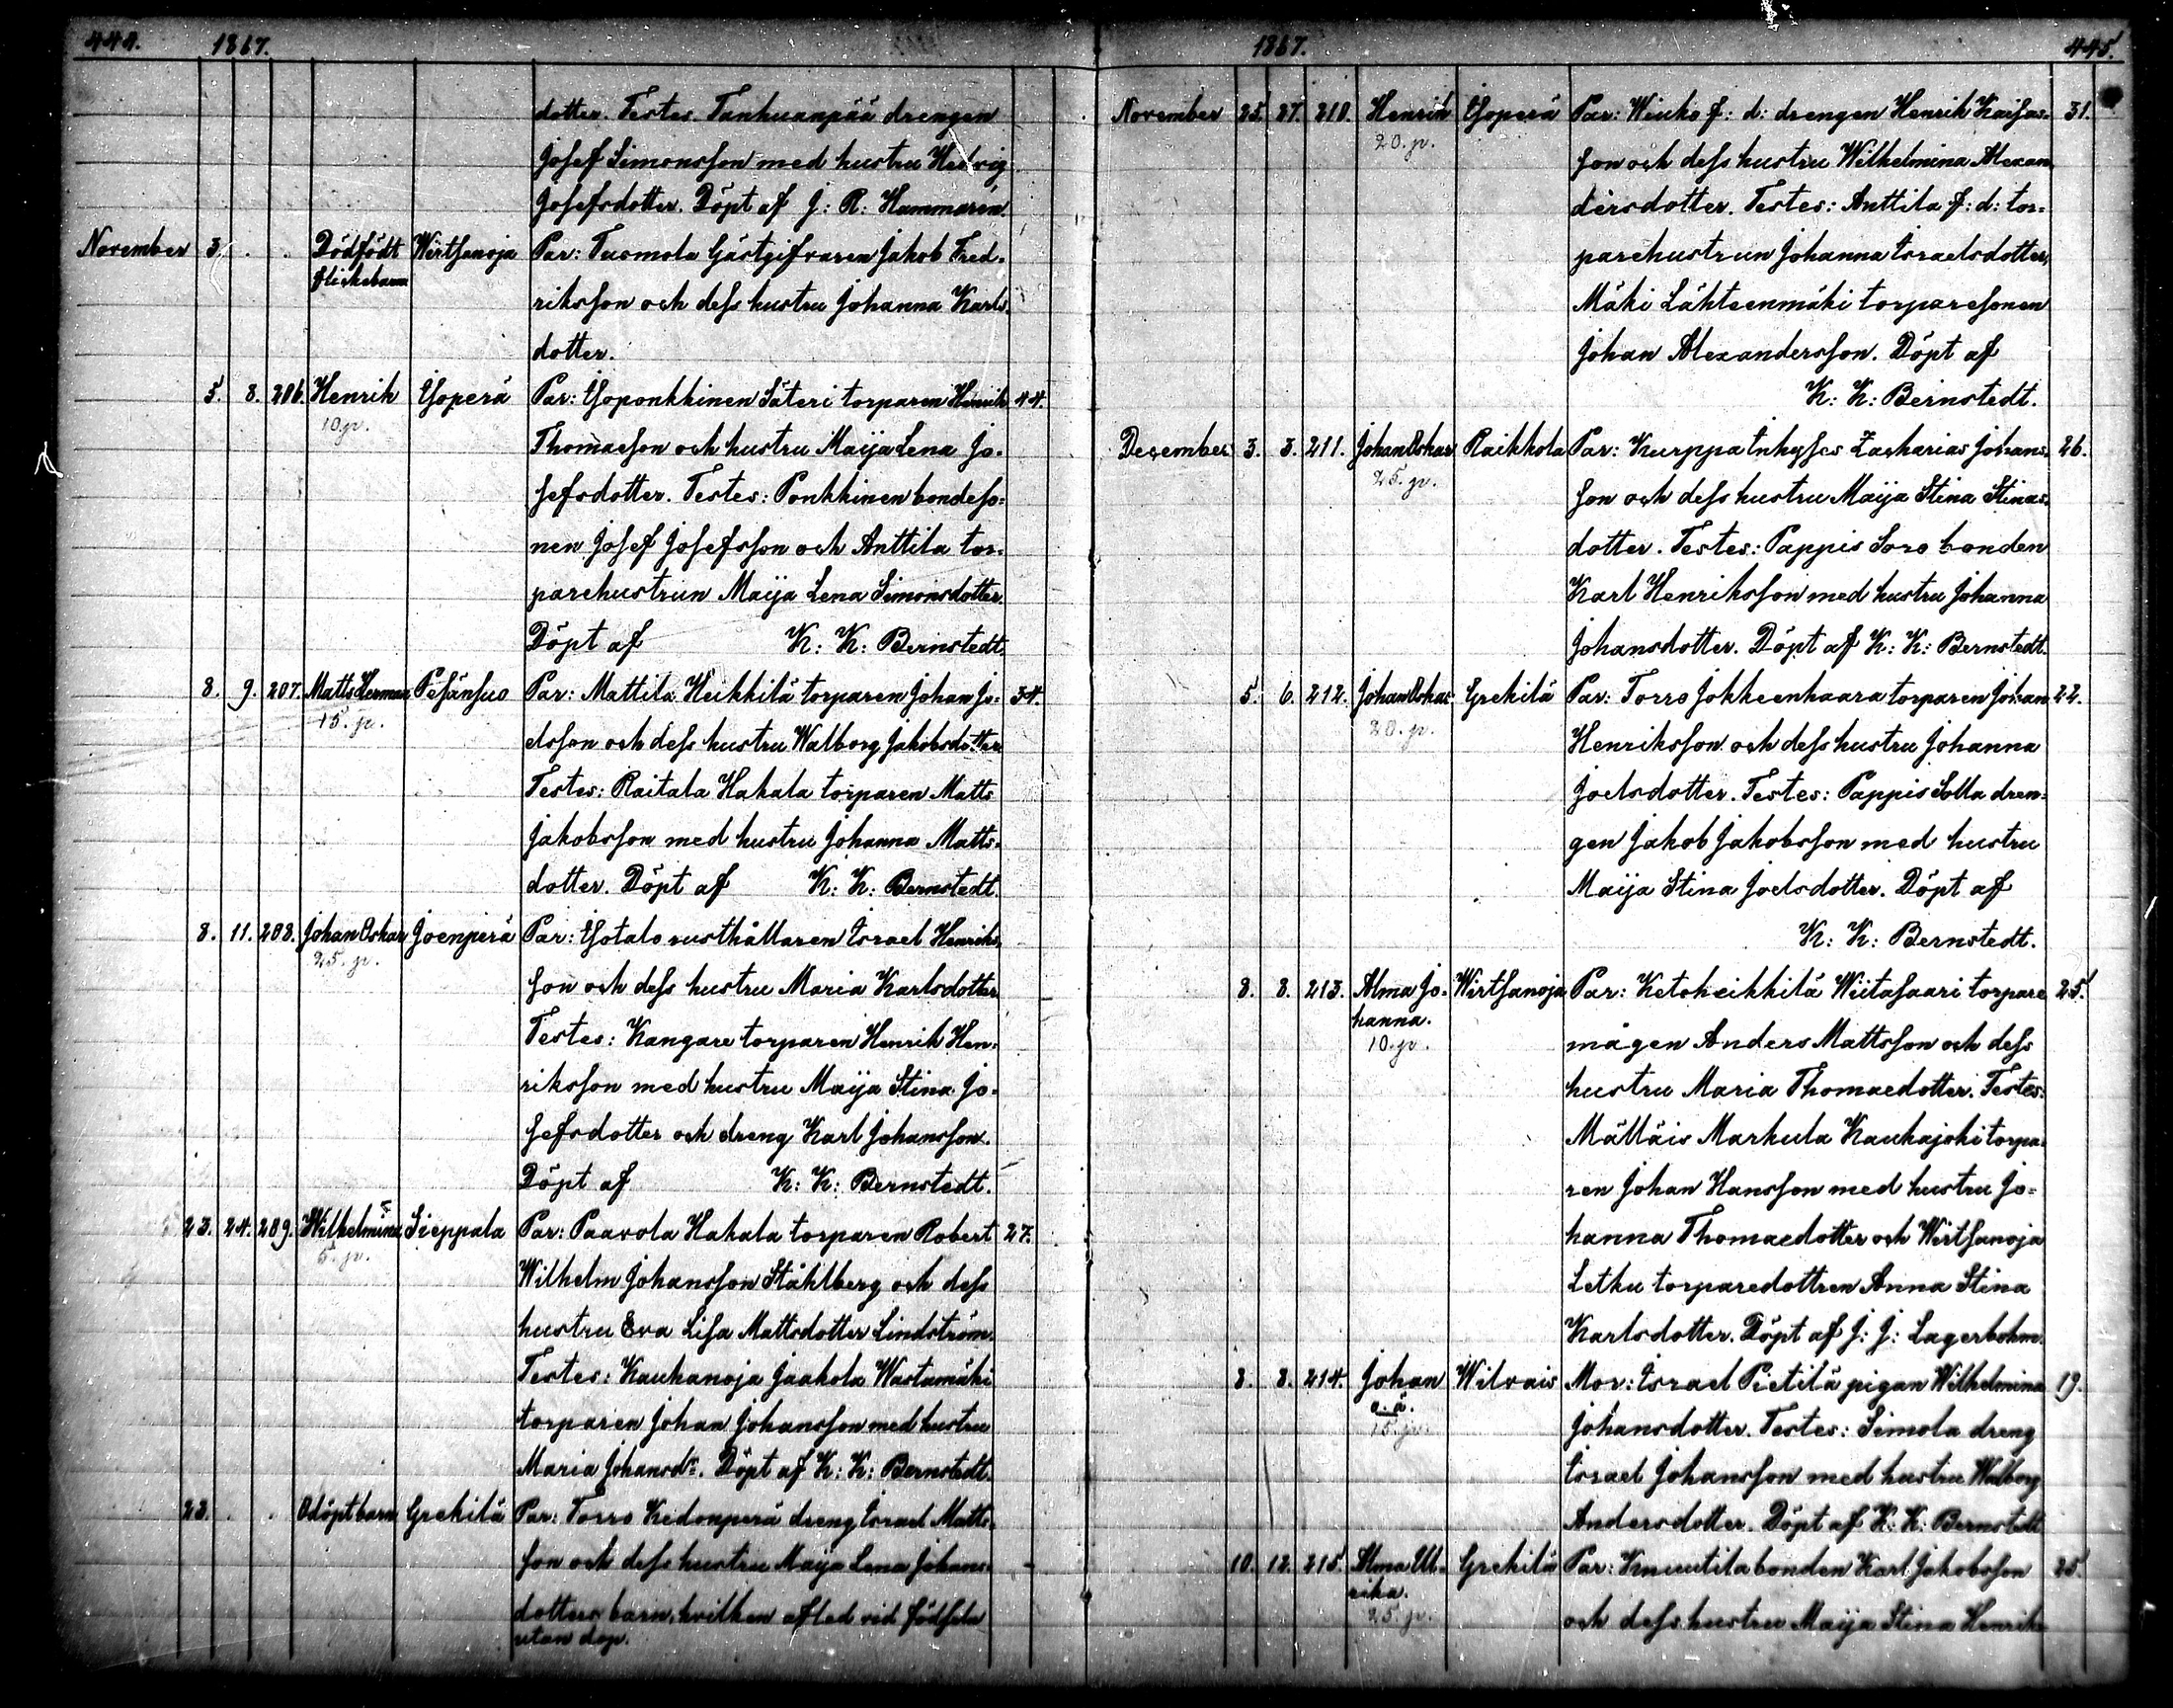 444. 1867.
dotter. Testes. Tanhuanpää drengen
Josef Simonsson med hustru Hedvig
Josefsdotter. Döpt af J: R: Hammarén.
November 3. . . Dödfödt Wirtsanoja Par: Tuomola Gästgifvaren Jakob Fred-
flickebarn
riksson och dess hustru Johanna Karls
dotter.
5. 8. 206. Henrik Yoperä Par: Yoponkkinen Säteri torparen Henrik 44.
10.p.
Thomasson och hustru Maija Lena Jo-
sefsdotter. Testes: Ponkkinen bondeso=
nen Josef Josefsson och Anttila tor-
parehustrun Maija Lena Simonsdotter.
Döpt af K: K: Bernstedt.
8. 9. 207. Matts Herman Pesänsuo Par: Mattila Heikkilä torparen Johan Jo- 34.
15. p.
elsson och dess hustru Walborg Jakobsdotter
Testes: Raitala Hakala torparen Matts
Jakobsson med hustru Johanna Matts-
dotter. Döpt af K: K: Bernstedt.
8. 11. 208. Johan Oskar Joenperä Par: Yotalo rusthållaren Israel Henriks
25. p.
son och dess hustru Maria Karlsdotter
Testes: Kangare torparen Henrik Hen-
riksson med hustru Maija Stina Jo-
sefsdotter och dreng Karl Johansson.
Döpt af K: K: Bernstedt.
23. 24. 209. Wilhelmina Sieppala Par: Paavola Hakala torparen Robert 27.
5. p.
Wilhelm Johansson Ståhlberg och dess
hustru Eva Lisa Mattsdotter Lindström.
Testes: Kauhanoja Jaakola Wastamäki
torparen Johan Johansson med hustru
Maria Johansdr. Döpt af K: K: Bernstedt.
23. . . Odöpt barn Grekilä Par: Torro Kedonperä dreng Israel Matts-
son och dess hustru Maija Lena Johans- -
dotters barn, hvilken afled vid födseln
utan dop.
1867. 445.
November 25. 27. 210. Henrik Yoperä Par: Wiuho f: d: drengen Henrik Kaifas- 31.
20. p.
son och dess hustru Wilhelmina Alexan
dersdotter. Testes: Anttila f: d: tor=
parehustrun Johanna Israelsdotter,
Mäki Lähteenmäki torparesonen
Johan Alexandersson. Döpt af
K: K: Bernstedt.
December 3. 3. 211. Johan Oskar Raikkola Par: Kurppa Inhyses Zacharias Johans- 26.
25. p.
son och dess hustru Maija Stina Stinas-
dotter. Testes: Pappis Soro bonden
Karl Henriksson med hustru Johanna
Johansdotter. Döpt af K: K: Bernstedt.
5. 6. 212. Johan Oskar Grekilä Par: Torro Jokkeenhaara torparen Johan 22.
20. p.
Henriksson och dess hustru Johanna
Joelsdotter. Testes: Pappis Solla dren-
gen Jakob Jakobsson med hustru
Maija Stina Joelsdotter. Döpt af
K: K: Bernstedt.
8. 8. 213. Alma Jo- Wirtsanoja Par: Ketoheikkilä Wiitasaari torpare 25.
hanna.
10. p.
mågen Anders Mattsson och dess
hustru Maria Thomaedotter. Testes:
Mälläis Markula Kauhajoki torpa-
ren Johan Hansson med hustru Jo-
hanna Thomaedotter och Wirtsanoja
Letku torparedottren Anna Stina
Karlsdotter. Döpt af J: J: Lagerbohm.
8. 8. 214. Johan Wilvais Mor: Israel Pietilä pigan Wilhelmina 19.
o. ä.
15. p.
Johansdotter. Testes: Simola dreng
Israel Johansson med hustru Walborg
Andersdotter. Döpt af K: K: Bernstedt
10. 12. 215. Alma Ul- Grekilä Par: Knuutila bonden Karl Jakobsson 25.
rika.
25. p.
och dess hustru Maija Stina Henriks